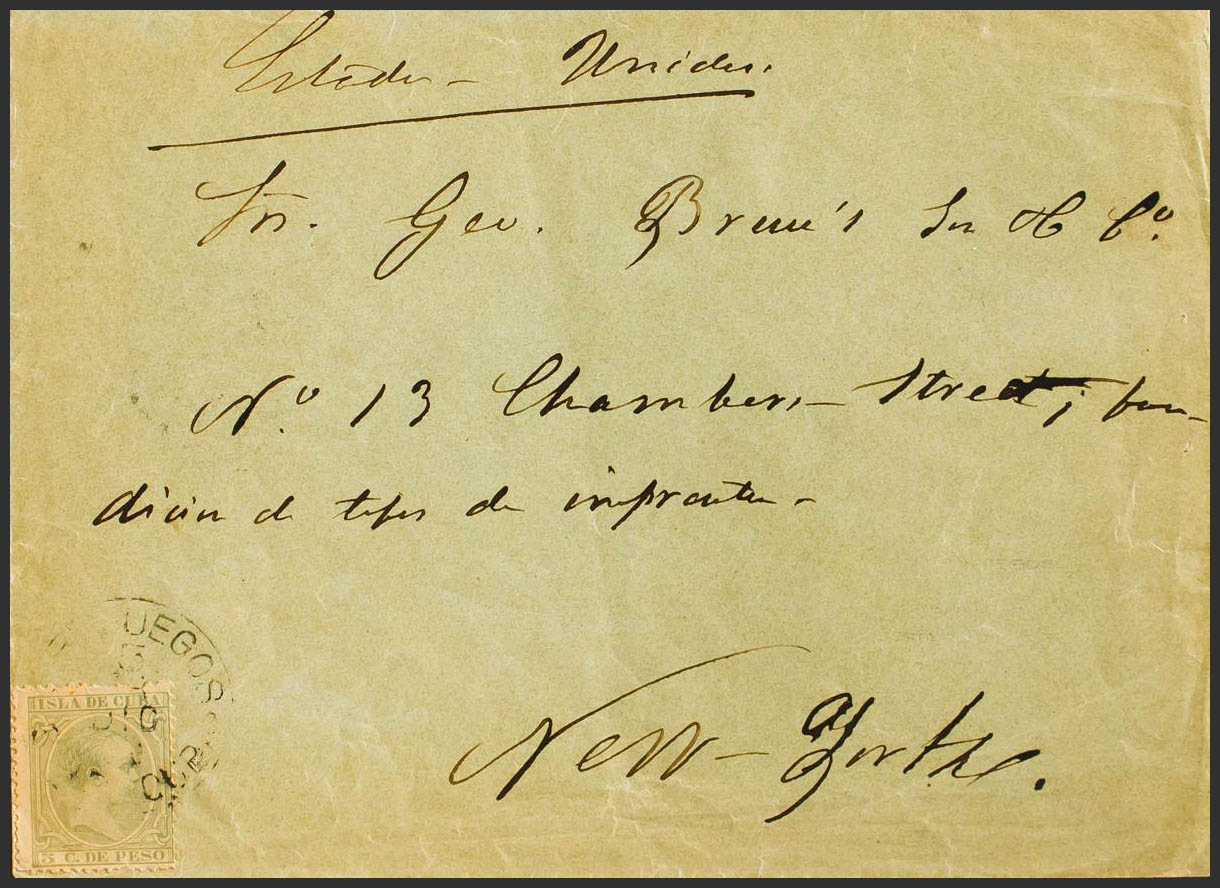 Estados - Unidos.
Sr. Geo. Bruce's Son & Co.
No. 13 Chambers - Street; fun-
dicion de tipos de imprenta -
New - Yorke.
UEGOS
DIC
CUB
ISLA DE CUBA
5 C. DE PESO